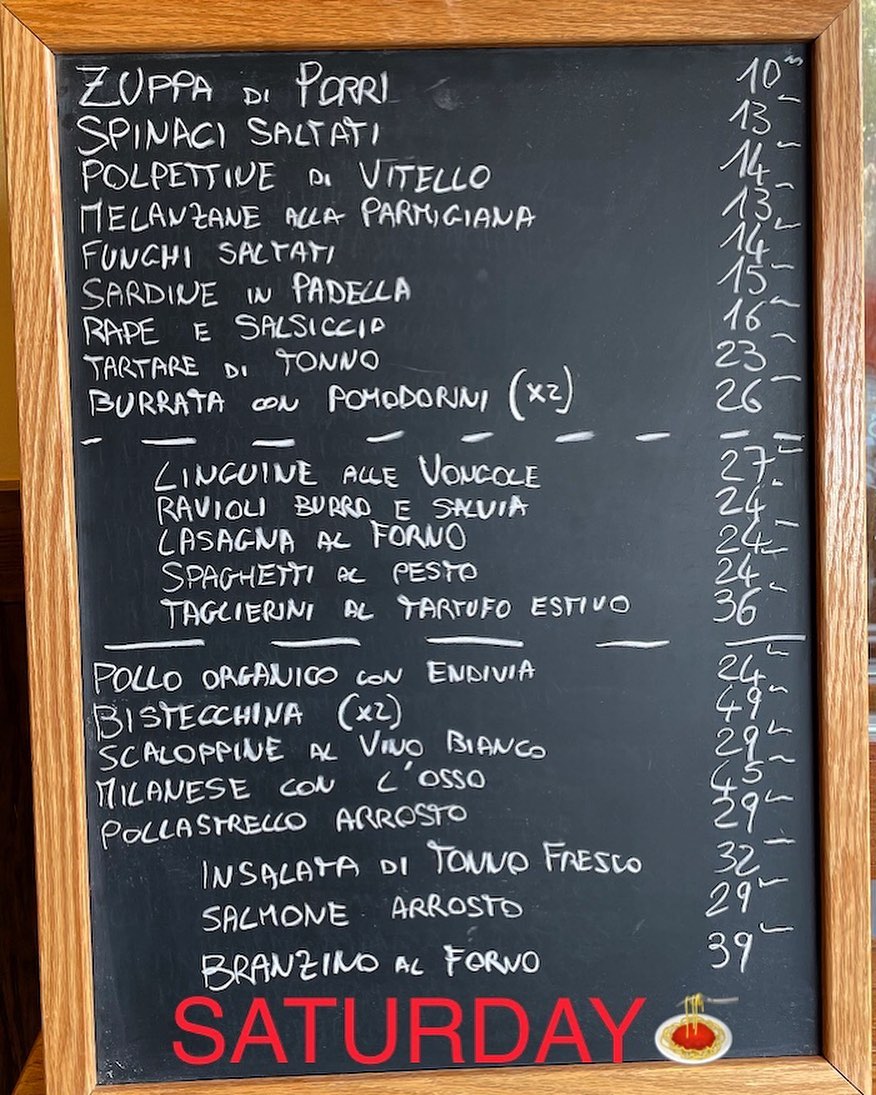 ZUPPA DI PORRI 10
SPINACI SALTATI 13
POLPETTINE DI VITELLO 14
MELANZANE ALLA PARMIGIANA 13
FUNCHI SALTATI 14
SARDINE IN PADELLA 15
RAPE E SALSICCIA 16
TARTARE DI TONNO 23
BURRATA CON POMODORINI (X2) 26
LINGUINE ALLE VONGOLE 27
RAVIOLI BURRO E SALVIA 24
LASAGNA AL FORNO 24
SPAGHETTI AL PESTO 24
TAGLIERINI AL TARTUFO ESTIVO 36
POLLO ORGANICO CON ENDIVIA 24
BISTECCHINA (X2) 49
SCALOPPINE AL VINO BIANCO 29
MILANESE CON L'OSSO 45
POLLASTRELLO ARROSTO 29
INSALATA DI TONNO FRESCO 32
SALMONE ARROSTO 29
BRANZINO AL FORNO 39
SATURDAY